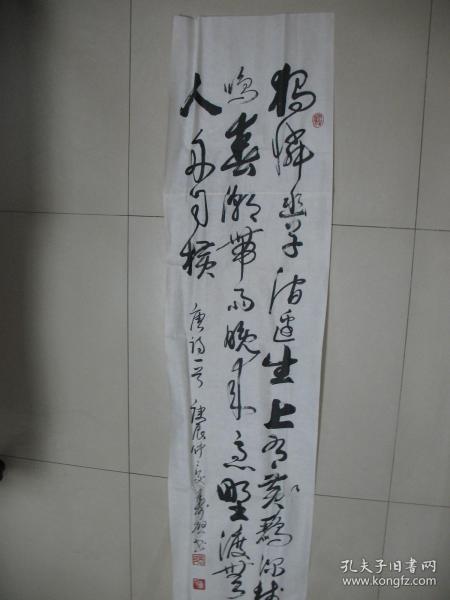 独怜幽草涧边生上有黄鹂深树
鸣春潮带雨晚来急野渡无
人舟自横
唐诗一首 庚辰仲
孔夫子旧书网
www.kongfz.com